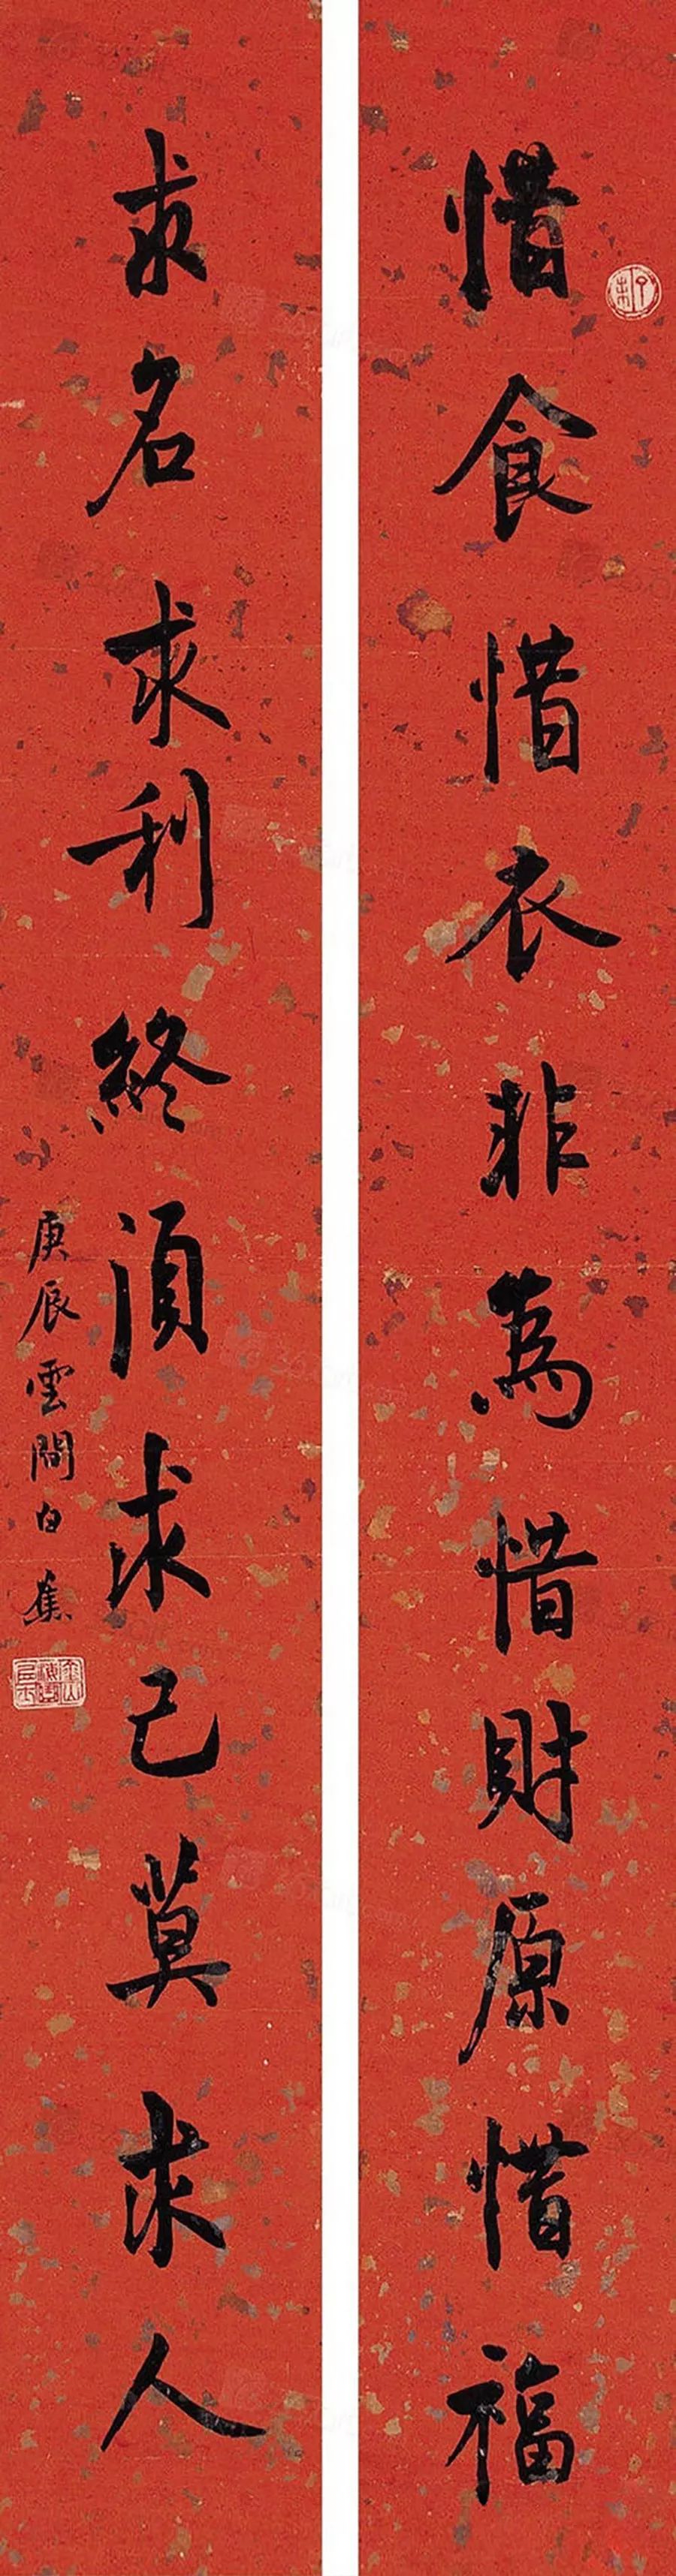 惜食惜衣非為惜財原惜福
求名求利終須求己莫求人
庚辰雲間白蕉